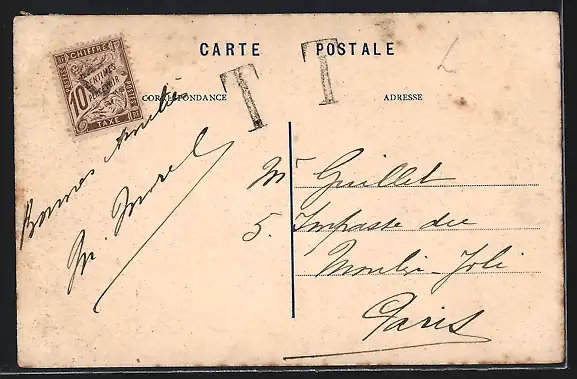 CHIFFRE
10
CENTIMES
A PERCEVOIR
POSTES
TAXE
CARTE POSTALE
T T
CORRESPONDANCE
ADRESSE
Bonnes Amitiés
M. Morel
Mr Guillet
5. Impasse du
Moulin-Joli
Paris